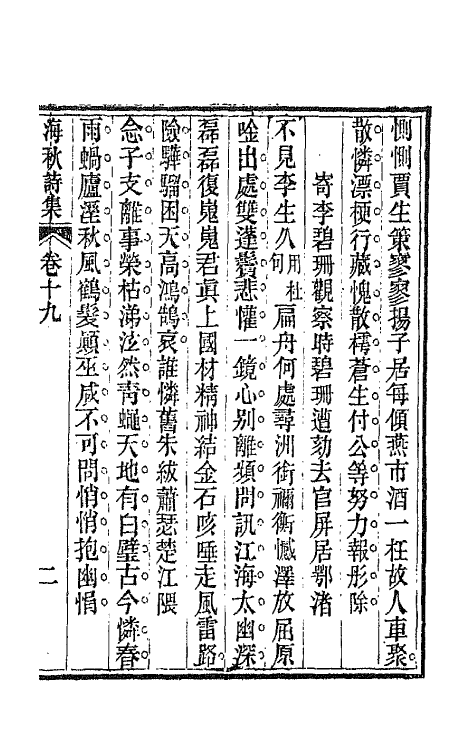 惻惻賈生策寥寥揚子居每傾燕市酒一枉故人車聚
散憐漂梗行藏愧散樗蒼生付公等努力報彤除
寄李碧珊觀察時碧珊遭劾去官屏居鄂渚
不見李生久用杜句扁舟何處尋洲銜禰衡憾澤放屈原
唫出處雙蓬鬢悲懽一鏡心别離頻問訊江海太幽深
磊磊復嵬嵬君真上國材精神結金石咳唾走風雷路
險驊騮困天高鴻鵠哀誰憐舊朱紱蕭瑟楚江隈
念子支離事榮枯涕泫然靑蠅天地有白璧古今憐春
雨蝸廬溼秋風鶴髮顛巫咸不可問悄悄抱幽悁
海秋詩集 卷十九 二